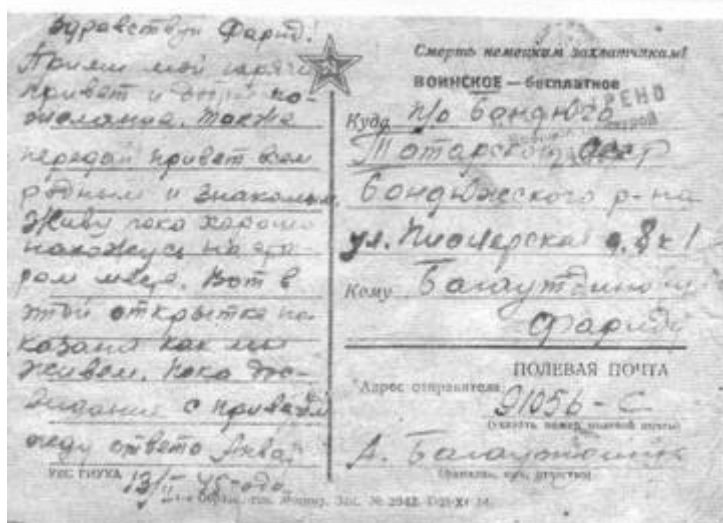 Здравствуй Фарид!
Прими мой горячий
привет и
желания. Также
передай привет всем
родным и знакомым.
Живу пока хорошо
нахожусь на ста-
ром месте. Вот в
этой открытке по-
казано как мы
живем. Пока до-
видание с приветом
жду ответа
13/II-45 года
Смерть немецким захватчикам!
ВОИНСКОЕ — бесплатное
Куда п/о Бондюга
Татарской АССР
Бондюжского р-на
ул. Пионерская д. 8 к 1
Кому Багаутдинову
Фариду
ПОЛЕВАЯ ПОЧТА
Адрес отправителя
91056-С
(указать номер полевой почты)
А. Багаутдинов
(фамилия, имя, отчество)